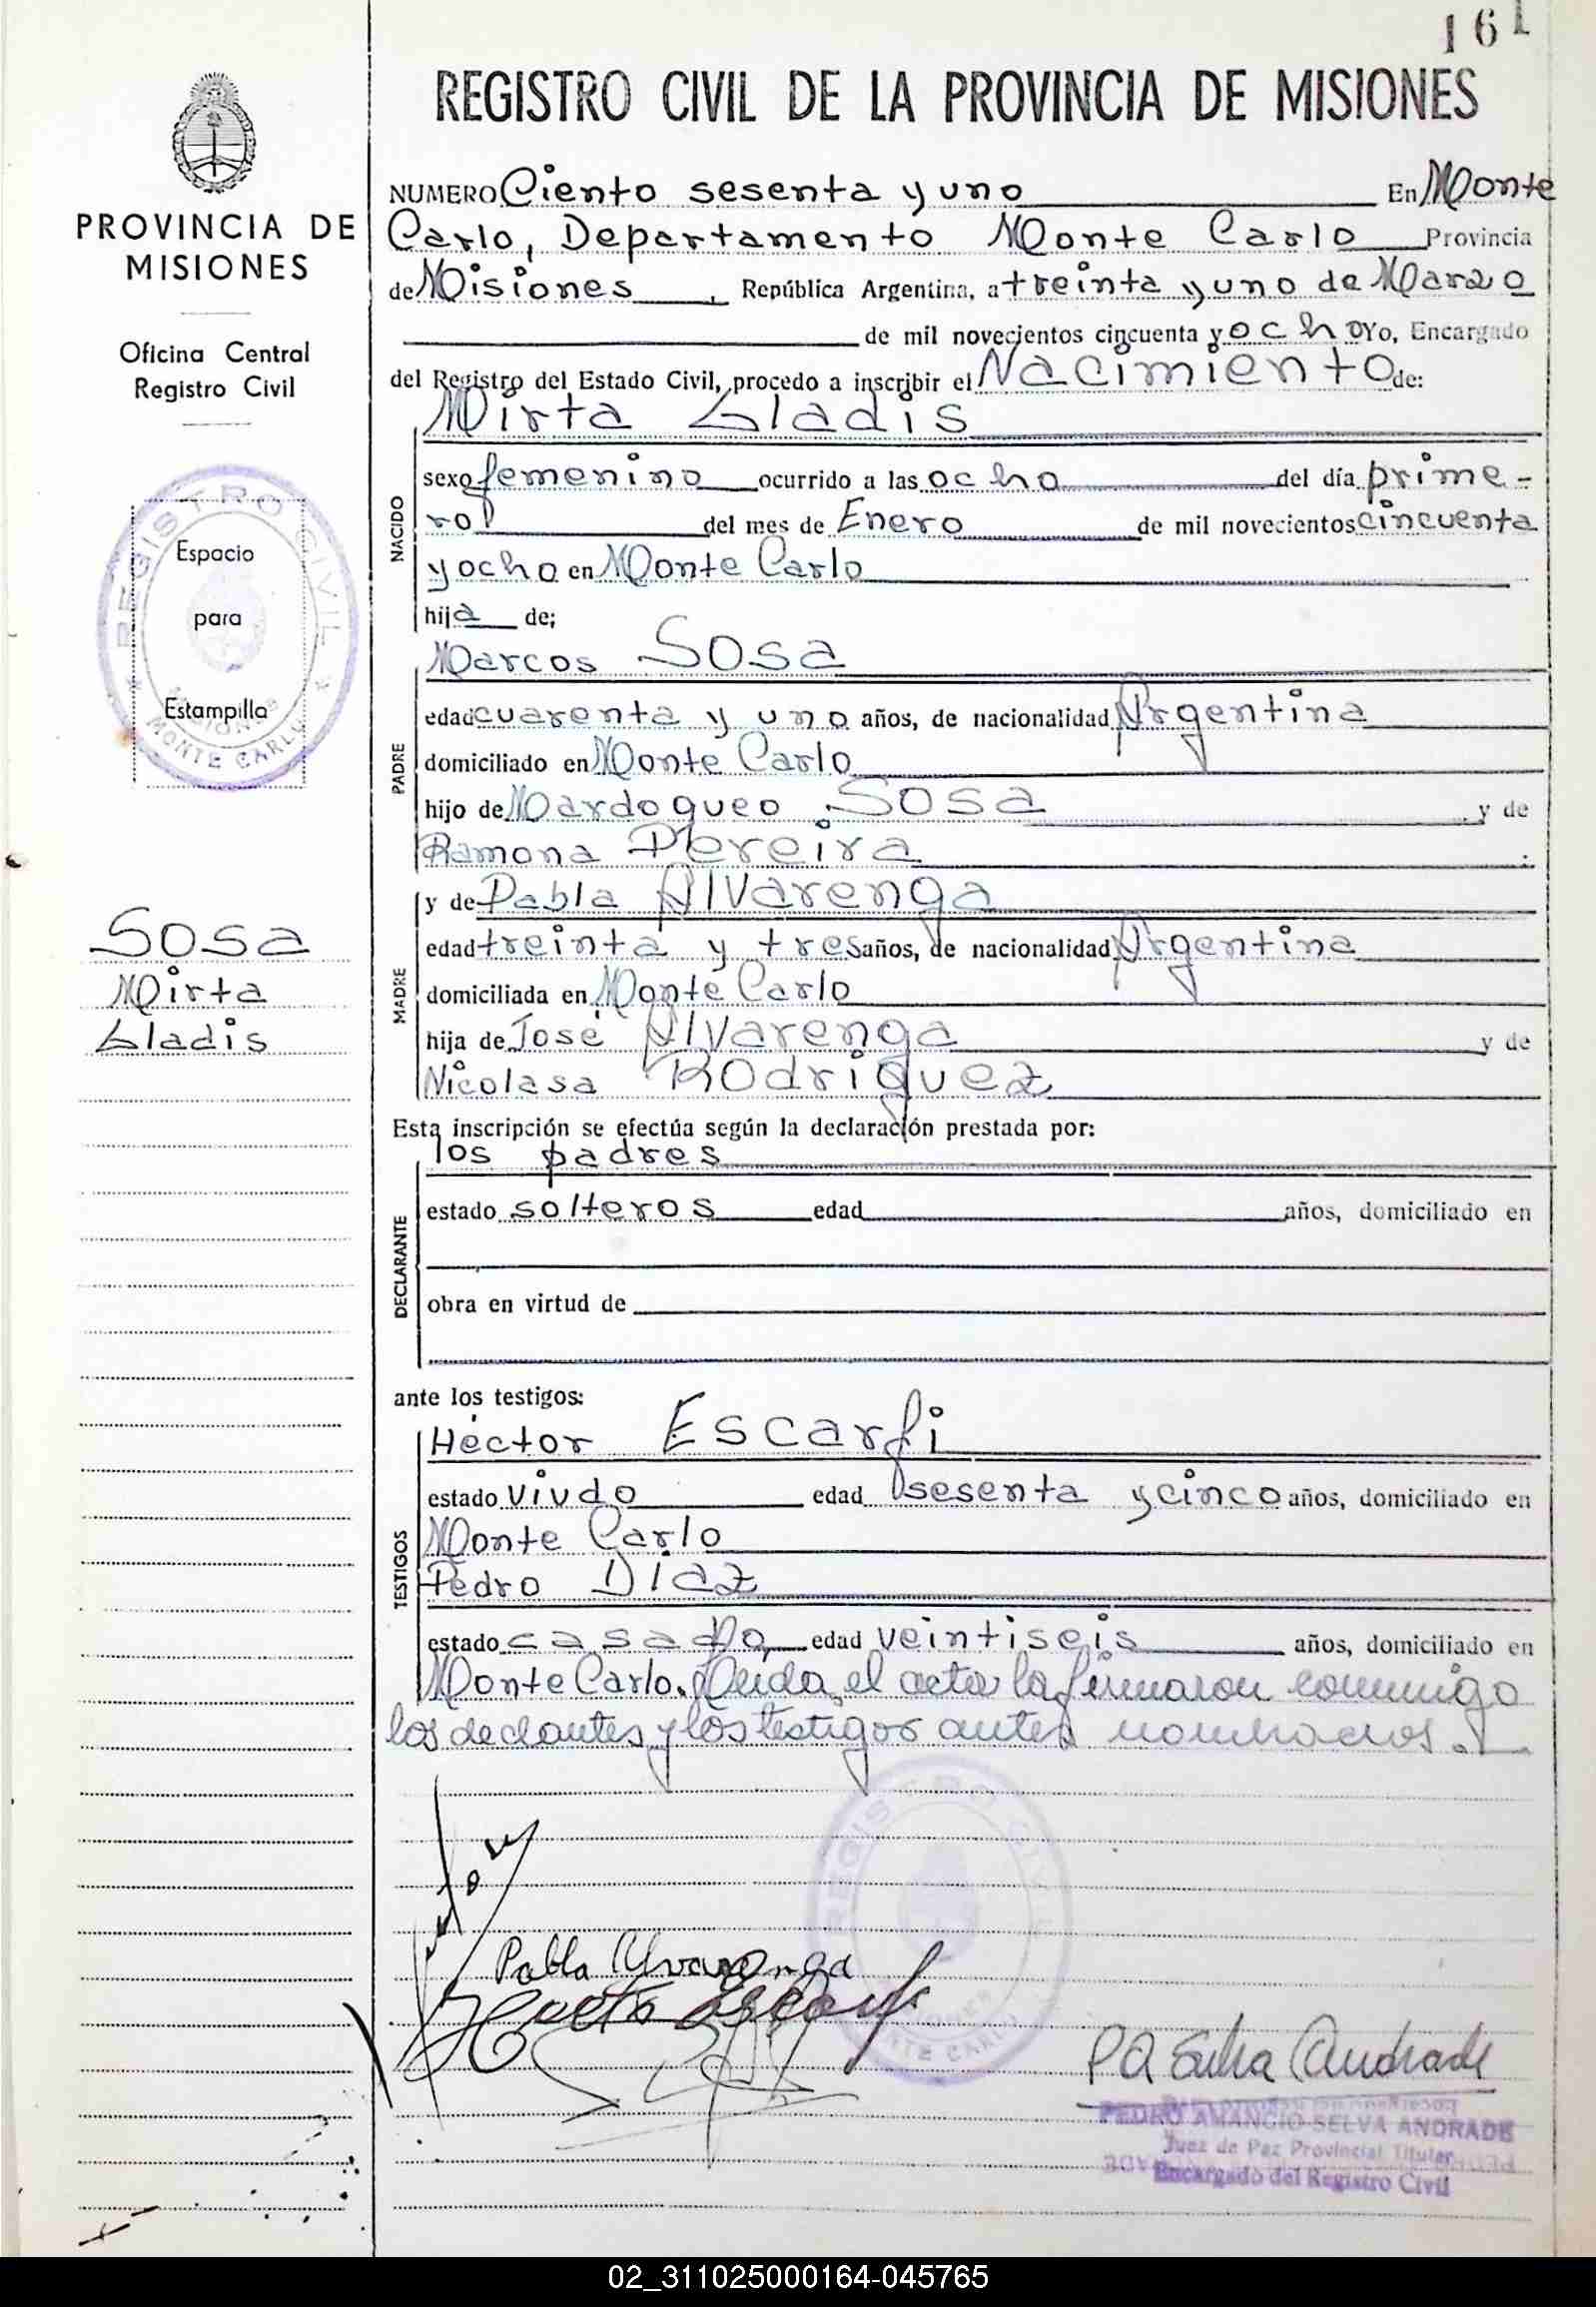 161
REGISTRO CIVIL DE LA PROVINCIA DE MISIONES
PROVINCIA DE
MISIONES
Oficina Central
Registro Civil
REGISTRO CIVIL
Espacio
para
Estampilla
MISIONES
MONTE CARLO
Sosa
Mirta
Gladis
NUMERO Ciento sesenta y uno En Monte
Carlo, Departamento Monte Carlo Provincia
de Misiones, República Argentina, a treinta y uno de Marzo
de mil novecientos cincuenta y ocho Yo, Encargado
del Registro del Estado Civil, procedo a inscribir el Nacimiento de:
Mirta Gladis
NACIDO
sexo femenino ocurrido a las ocho del día prime-
ro del mes de Enero de mil novecientos cincuenta
y ocho en Monte Carlo
hija de;
Marcos Sosa
PADRE
edad cuarenta y uno años, de nacionalidad Argentina
domiciliado en Monte Carlo
hijo de Mardoqueo Sosa y de
Ramona Pereira
y de Pabla Alvarenga
MADRE
edad treinta y tres años, de nacionalidad Argentina
domiciliada en Monte Carlo
hija de José Alvarenga y de
Nicolasa Rodriguez
Esta inscripción se efectúa según la declaración prestada por:
los padres
DECLARANTE
estado solteros edad años, domiciliado en
obra en virtud de
ante los testigos:
Héctor Escarfi
TESTIGOS
estado viudo edad sesenta y cinco años, domiciliado en
Monte Carlo
Pedro Diaz
estado casado edad veintiseis años, domiciliado en
Monte Carlo. Leida el acta la firmaron conmigo
los declantes y los testigos antes nombrados.
Pabla Alvarenga
P A Selva Andrade
PEDRO AMANCIO SELVA ANDRADE
Juez de Paz Provincial Titular
Encargado del Registro Civil
02_311025000164-045765